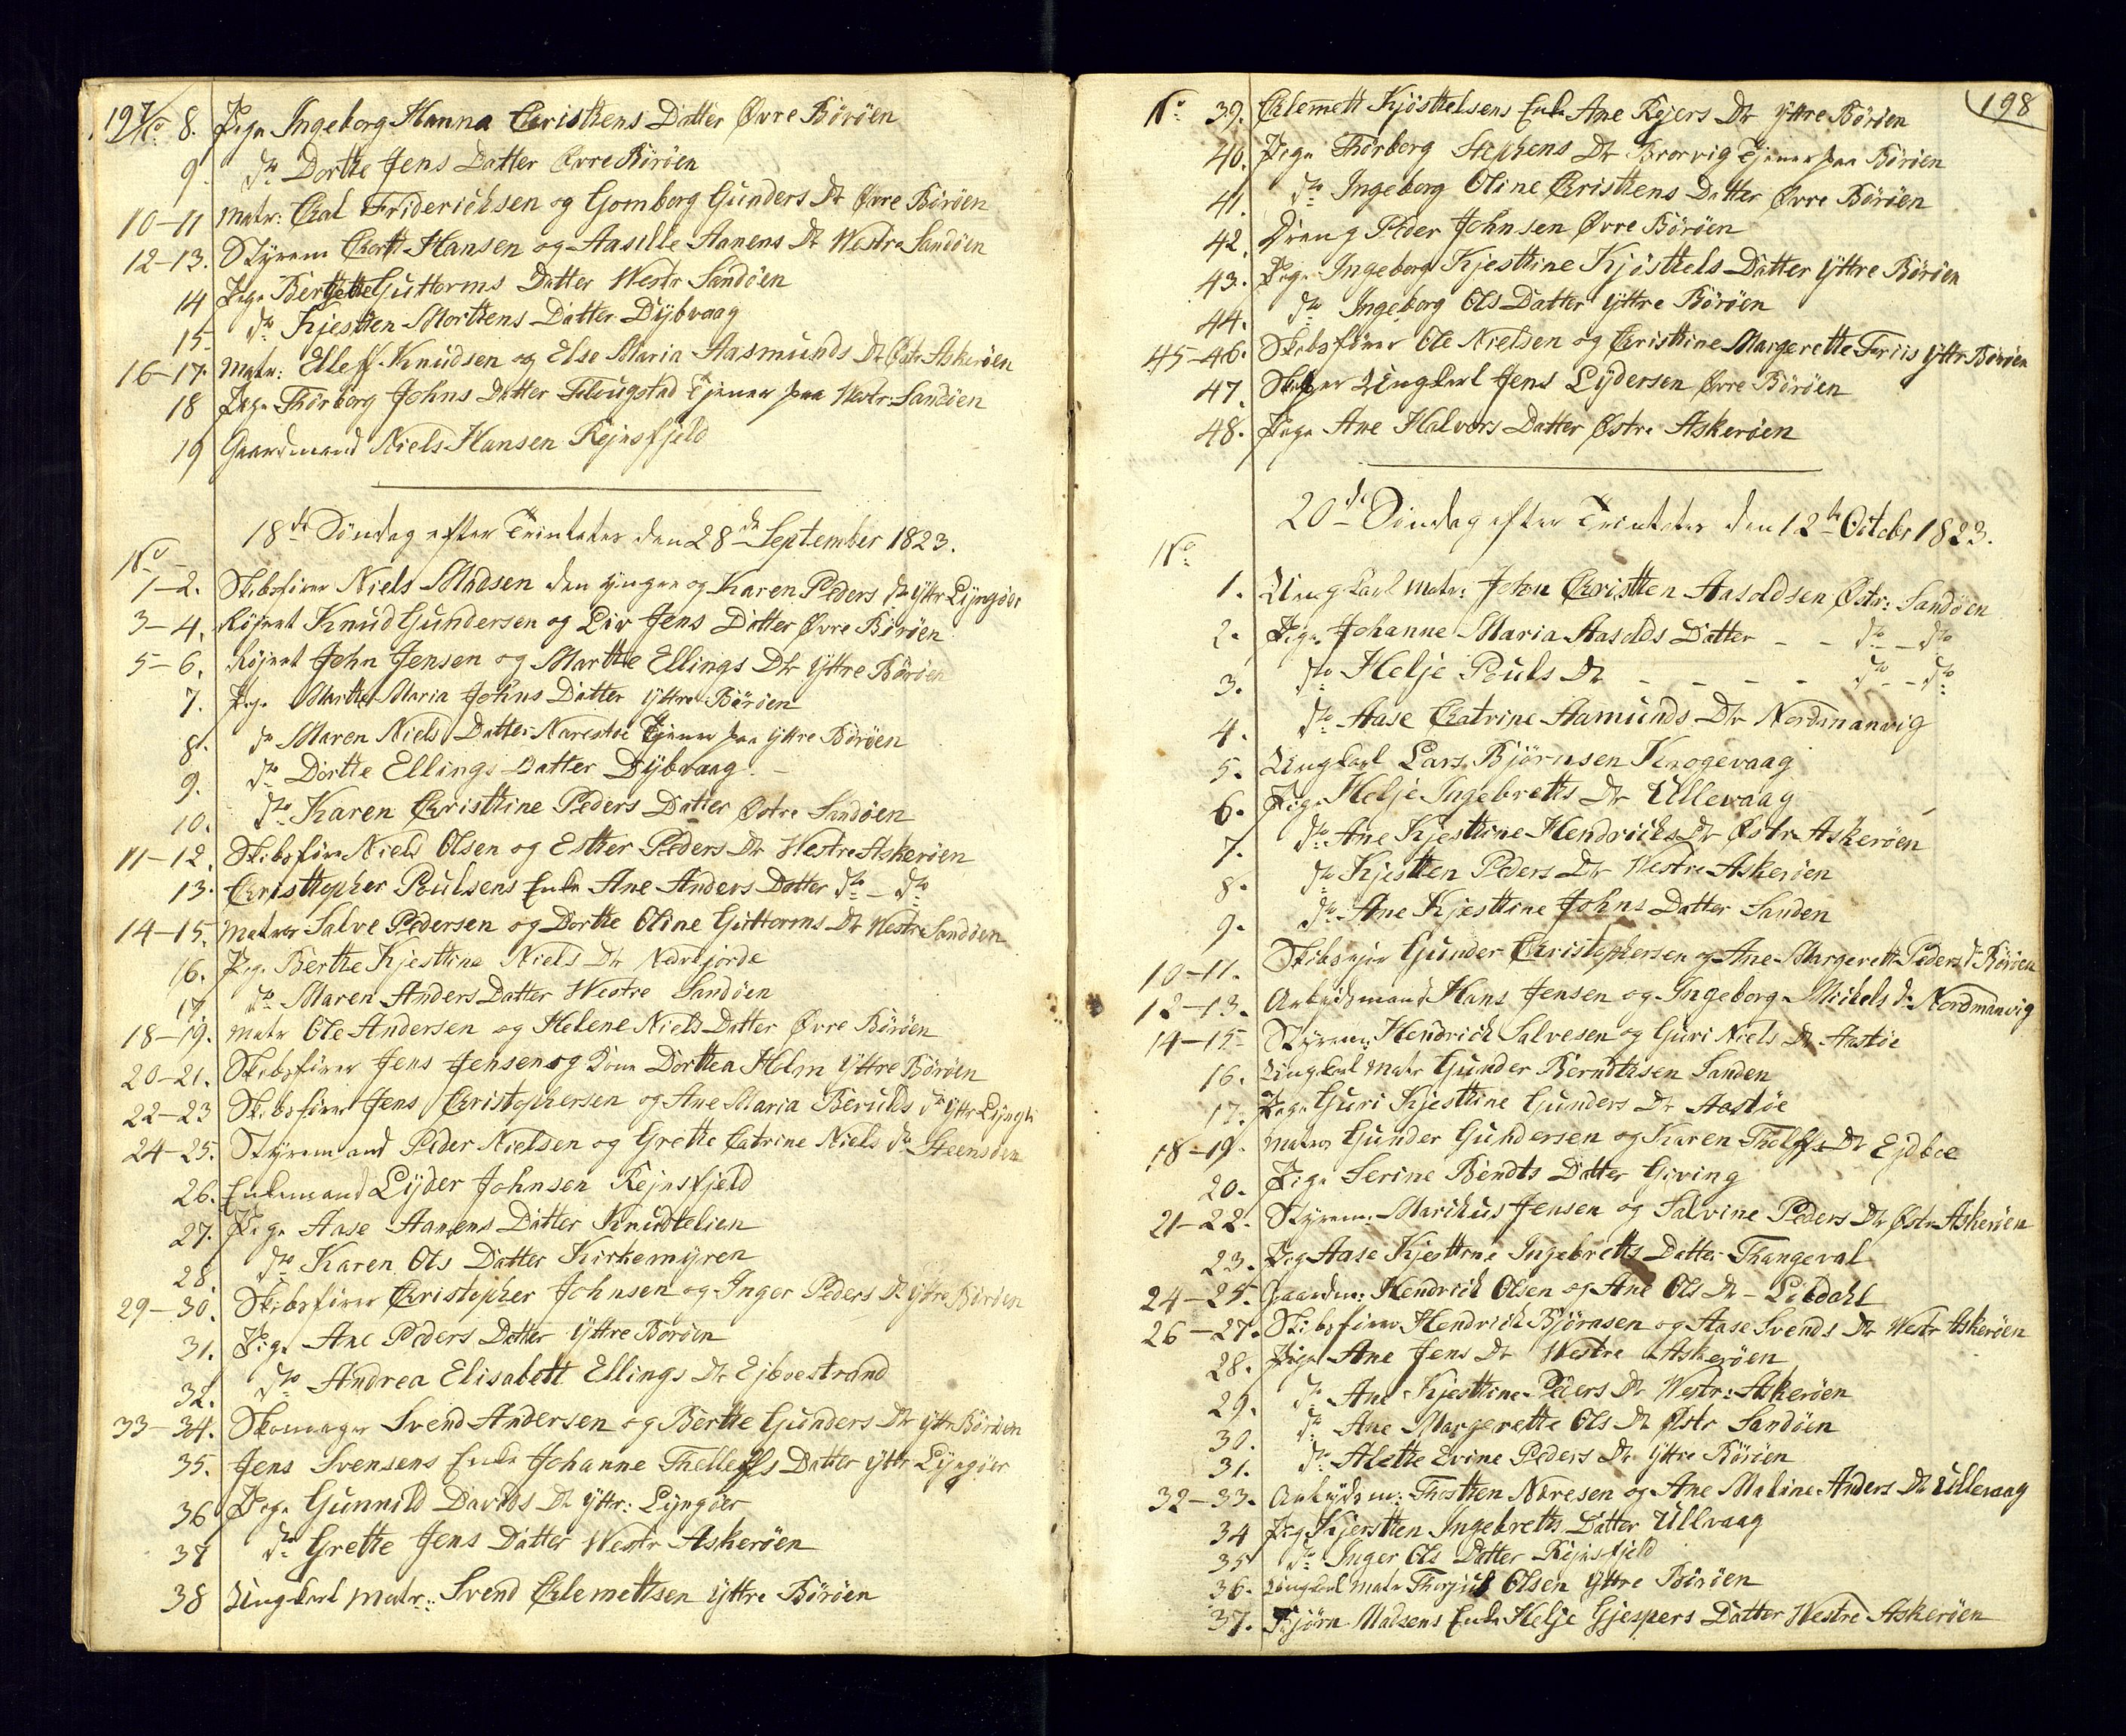 197
No 8. Pige Ingeborg Hanna Christhens Datter Øvre Börøen
9. do Dorthe Jens Datter Øvre Börøen
10-11 Matr: Carl Friderichsen og Gomborg Gunders Dr Øvre Börøen
12-13. Styrem Hansen og Aasille Aanens Dr Westre Sandøen
14 Pige Berthe Guttorms Datter Westr Sandöen
15 do Kjesten Morthens Datter Dybvaag
16-17. Matr: Elleff Knudsen og Else Maria Aasmunds Dr Östr Askeröen
18 Pige Thorborg Johns Datter Tjener paa Westr Sandöen
19 Gaardmand Niels Hansen Rejnsfjeld
18de Söndag efter Trinitatis den 28de September 1823.
No
1-2. Skibsfører Niels Madsen den yngre og Karen Peders dr Yttr Lyngöer
3-4. Knud Gundersen og Liv Jens Datter Øvre Böröen
5-6. John Jensen og Marthe Ellings Dr Yttre Böröen
7. Pige Marthe Maria Johns Datter Yttre Böröen
8. do Maren Niels Datter Narestøe Tjener paa Yttre Böröen
9. do Dorthe Ellings Datter Dybvaag
10. do Karen Christhine Peders Datter Østre Sandöen
11-12. Skibsfører Niels Olsen og Esther Peders Dr Westre Askeröen
13. Christhepher Poulsens Enke Ane Anders Datter do - do
14-15. Matros Salve Pedersen og Dorthe Oline Guttorms Dr Westre Sandöen
16. Pige Berthe Kjesthine Niels Dr Nedrefjorde
17 do Maren Anders Datter Westre Sandöen
18-19. Matr Ole Andersen og Helene Niels Datter Øvre Böröen
20-21. Skibsfører Jens Jensen og Kone Dorthea Holm Yttre Böröen
22-23 Skibsfører Jens Christophersen og Ane Maria Berulds dr Yttr Lyngö
24-25. Styremand Peder Nielsen og Grethe Catrine Niels dr Steensöen
26. Enkemand Lyder Johnsen Rejnsfjeld
27. Pige Aase Aanens Datter Knudtelien
28 do Karen Ols Datter Kirkemyren
29-30. Skibsfører Christopher Johnsen og Inger Peders Dr Yttre Böröen
31. Pige Ane Peders Datter Yttre Böröen
32. do Andrea Elisabeth Ellings Dr Ejboestrand
33-34. Skomager Svend Andersen og Berthe Gunders Dr Yttr Böröen
35. Jens Svensens Enke Johanne Thelleffs Datter Yttr Lyngöer
36 Pige Gunnild Davids Dr Yttr: Lyngöer
37 do Grethe Jens Datter Westr Askeröen
38 Ungkarl Matr: Svend Clemettsen Yttre Böröen
198
No 39. Clemett Kjösttelsens Enke Ane Rejers Dr Yttre Böröen
40. Pige Thorborg Stephens Dr Brorvig Tjener paa Böröen
41. do Ingeborg Oline Christhens Datter Øvre Böröen
42. Dreng Peder Johnsen Øvre Böröen
43. Pige Ingeborg Kjesthine Kjösthels Datter Yttre Böröen
44. do Ingeborg Ols Datter Yttre Böröen
45-46. Skibsfører Ole Nielsen og Christhine Margerethe Yttr Böröen
47. Ungkarl Jens Lydersen Øvre Böröen
48. Pige Ane Halvors Datter Østre Askeröen
20de Söndag efter Trinitatis den 12te Octobr 1823.
No
1. Ungkarl Matr: John Christhen Aasoldsen Østr: Sandöen
2. Pige Johanne Maria Aasolds Datter - - do - do
3. do Helje Pouls Dr - - - - do - do
4. do Aase Catrine Aamunds Dr Nordmanvig
5. Ungkarl Lars Björnsen Krogevaag
6. Pige Helje Ingebretts Dr Ullevaag
7. do Ane Kjesthine Hendrichs Dr Östr Askeröen
8. do Kjesthen Peders Dr Westre Askeröen
9. do Ane Kjesthine Johns Datter Sanden
10-11. Skibsejer Gunder Christophersen og Ane Margereth Peders dr Böröen
12-13. Arbejdsmand Hans Jensen og Ingeborg Michels dr Nordmanvig
14-15 Styrem: Hendrich Salvesen og Guri Niels Dr Aastøe
16. Ungkarl Matr Gunder Berndthsen Sanden
17. Pige Guri Kjesthine Gunders Dr Aastøe
18-19. Matros Gunder Gundersen og Karen Dr Ejdboe
20. Pige Serine Bendts Datter Giving
21-22. Styrem: Marchus Jensen og Salvine Peders Dr Østr Askeröen
23. Pige Aase Kjesthine Ingebretts Datter Thangeval
24-25. Gaardm: Hendrich Olsen og Ane Ols Dr - Lildahl
26-27. Skibsfører Hendrich Björnsen og Aase Svends Dr Westr Askeröen
28. Pige Ane Jens Dr Westre Askeröen
29. do Ane Kjesthine Peders Dr Westr: Askeröen
30. do Ane Margerethe Ols Dr Østr Sandöen
31. do Alethe Evine Peders Dr Yttre Böröen
32-33. Arbejdsm: Thosthen Næresen og Ane Maline Anders Dr Ullevaag
34 Pige Kjersthen Ingebretts Datter Ullvaag
35 do Inger Ols Datter Rejnsfjeld
36. Ungkarl Matr Thorjuls Olsen Yttre Böröen
37. Björn Madsens Enke Helje Gjespers Datter Westre Askeröen